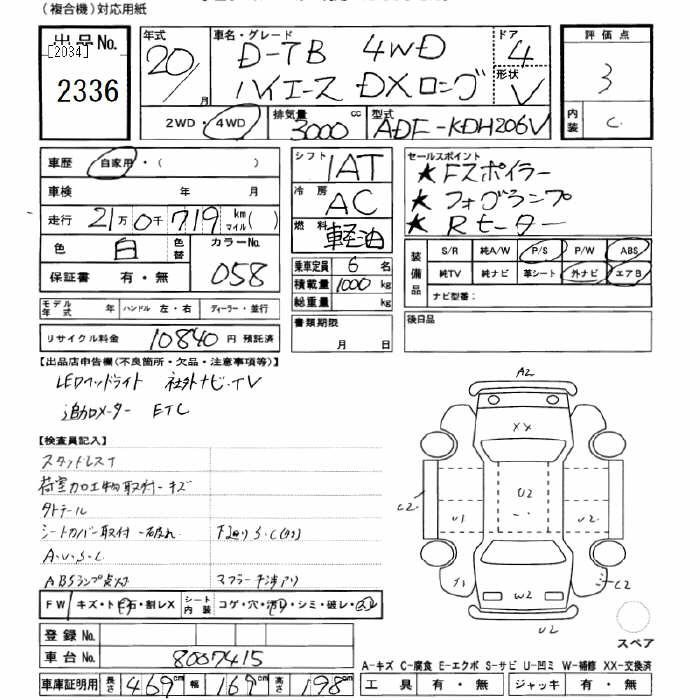 (複合機)対応用紙
出品No.
[2034]
2336
年式
20/
月
車名・グレード
D-TB 4WD
ハイエース DXロング
ドア
4
形状
V
評価点
3
内装
C
2WD・4WD
排気量
3000 cc
型式
ADF-KDH206V
車歴 自家用・( )
車検 年 月
走行 21万0千719 km マイル( )
色 白 色替
カラーNo.
058
保証書 有・無
シフト 1AT
冷房 AC
燃料 軽油
乗車定員 6 名
積載量 1000 kg
総重量 kg
書類期限
月 日
セールスポイント
★Fスポイラー
★フォグランプ
★Rヒーター
装備品
S/R 純A/W P/S P/W ABS
純TV 純ナビ 革シート 外ナビ エアB
ナビ型番:
後日品
モデル年式 年 ハンドル 左・右 ディーラー・並行
リサイクル料金 10840 円 預託済
【出品店申告欄(不良箇所・欠品・注意事項等)】
LEDヘッドライト 社外ナビ・TV
追加メーター ETC
【検査員記入】
スタッドレスT
荷室加工物取付・キズ
タトテール
シートカバー取付・破れ 下廻りS・C
A・U・S・C
ABSランプ点灯 マフラー干渉アリ
FW キズ・トビ石・割レX シート内装 コゲ・穴・汚レ・シミ・破レ・
登録No.
車台No. 8007415
車庫証明用 長さ 469cm 幅 169cm 高さ 198cm
A2
XX
U2
C2
U1
U2
C2
W2
U2
スペア
A-キズ C-腐食 E-エクボ S-サビ U-凹ミ W-補修 XX-交換済
工具 有・無 ジャッキ 有・無